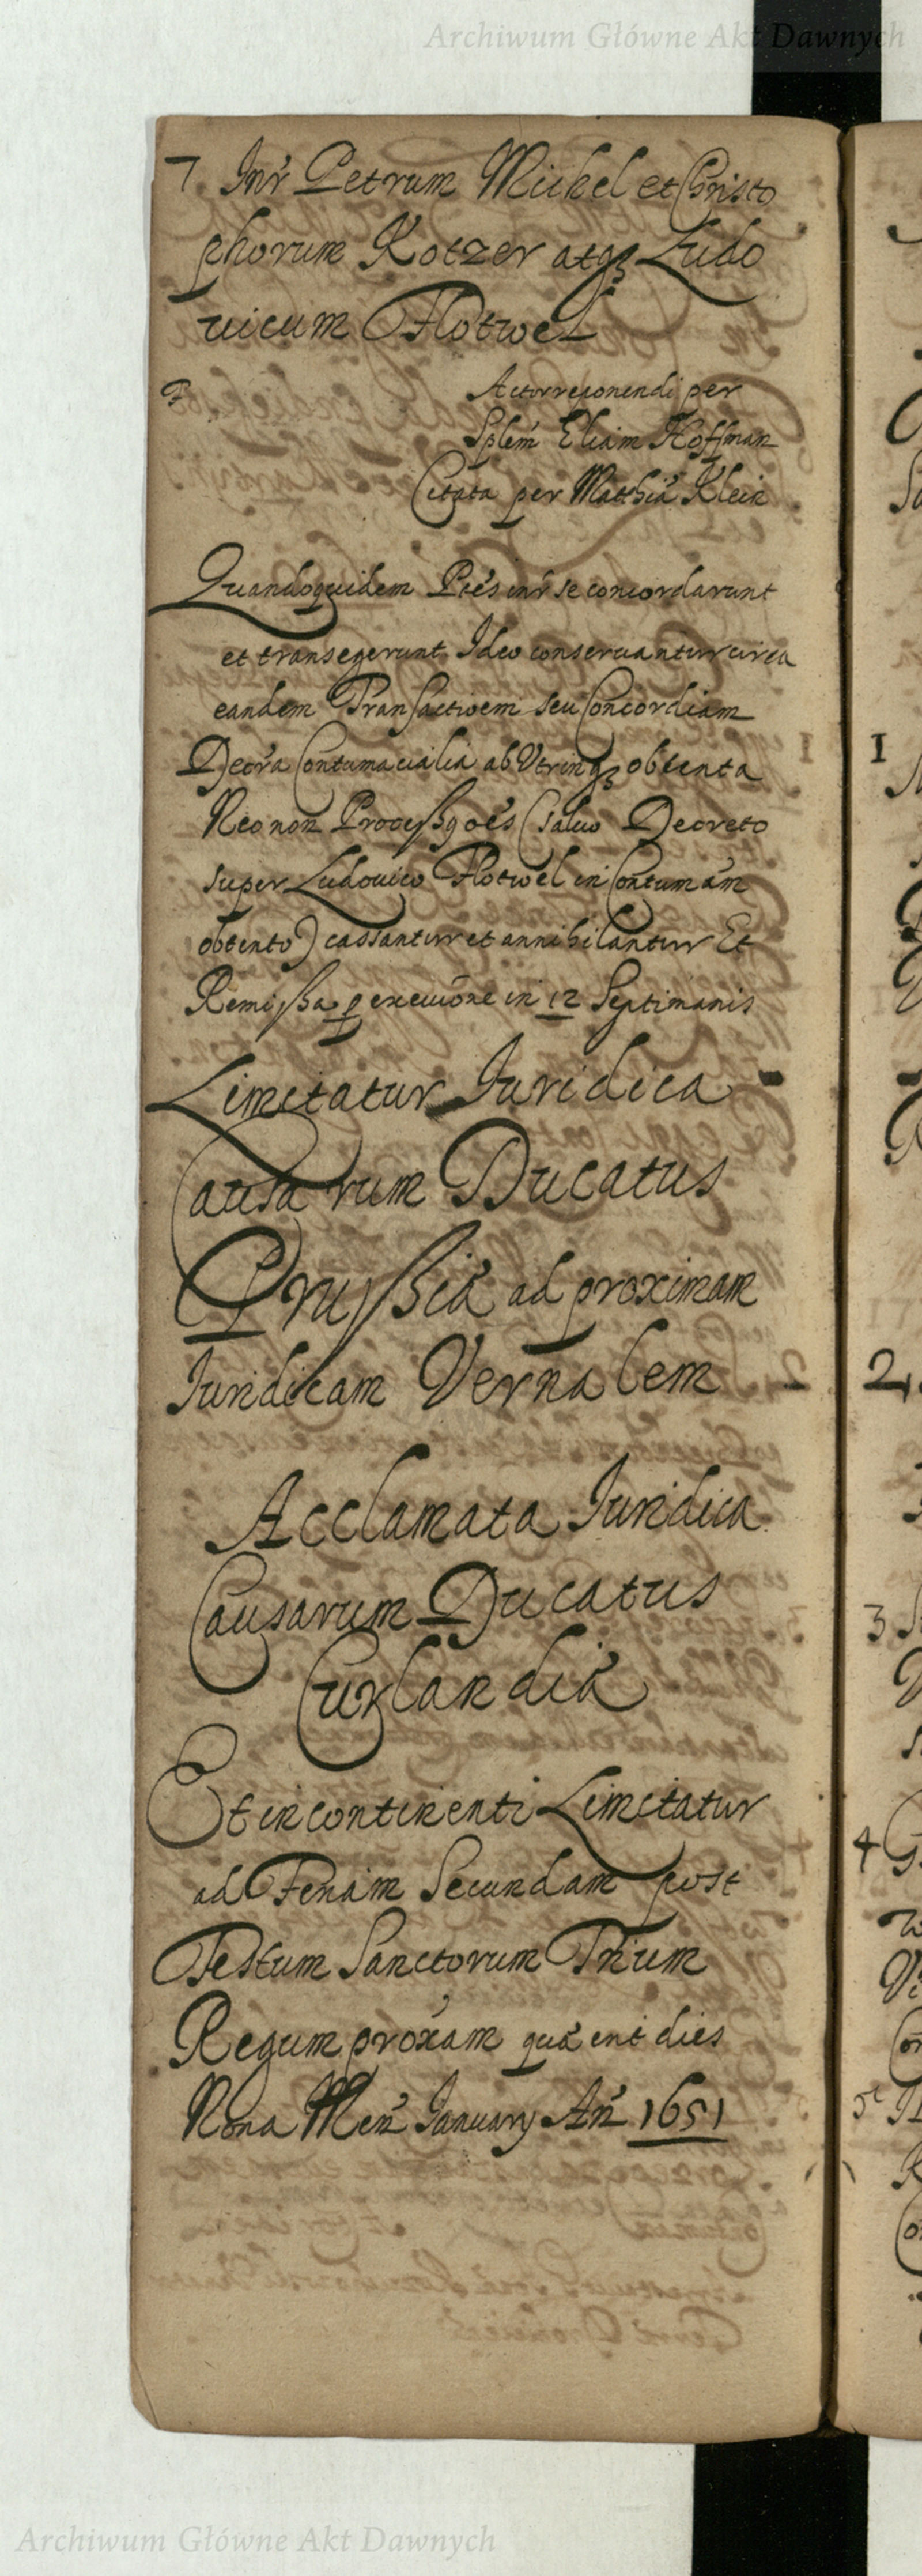 Archiwum Główne Akt Dawnych
7. Intr Petrum Michel et Christo
phorum Kotzer atqz Ludo
uicum Flotwel
Actor reponendi per
Splem Eliam Hoffman
Citata per Mathiā Klein
Quandoquidem Ptes intr se concordarunt
et transegerunt Ideo conseruantur circa
eandem Transactioem seu Concordiam
Decrā Contumacialia ab Utrinqz obtenta
Nec non Processq oēs (saluo Decreto
super Ludouico Flotwel in Contumām
obtento) cassantur et annihilantur Et
Remissa p execuōne in 12 Septimanis
Limitatur Juridica
Causarum Ducatus
Prussiæ ad proximam
Juridicam Vernalem
Acclamata Juridica
Causarum Ducatus
Curlandiæ
Et in continenti Limitatur
ad Feriam Secundam post
Festum Sanctorum Trium
Regum proxām quæ erit dies
Nona Men January An 1651
1
2
3
4
5
Archiwum Główne Akt Dawnych